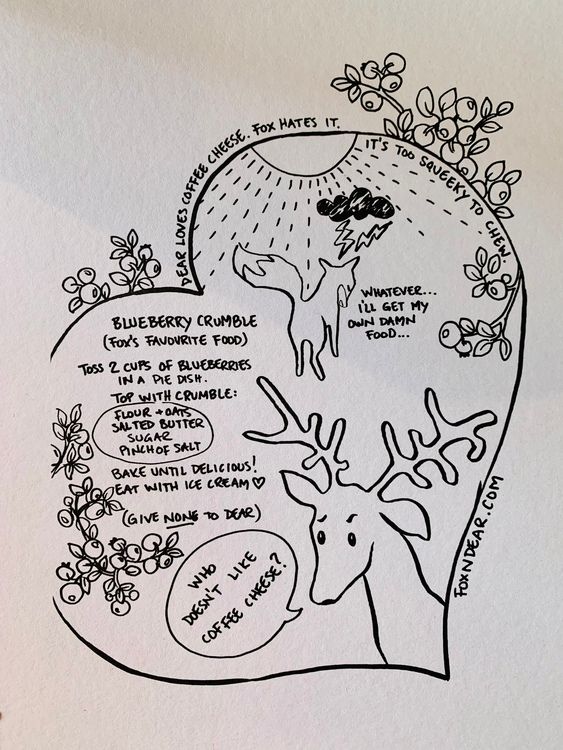 DEAR LOVES COFFEE CHEESE. FOX HATES IT.
IT'S TOO SQUEEKY TO CHEW.
WHATEVER...
I'LL GET MY
OWN DAMN
FOOD...
BLUEBERRY CRUMBLE
(FOX'S FAVOURITE FOOD)
TOSS 2 CUPS OF BLUEBERRIES
IN A PIE DISH.
TOP WITH CRUMBLE:
FLOUR + OATS
SALTED BUTTER
SUGAR
PINCH OF SALT
BAKE UNTIL DELICIOUS!
EAT WITH ICE CREAM ♡
(GIVE NONE TO DEAR)
WHO
DOESN'T LIKE
COFFEE CHEESE?
FOXNDEAR.COM